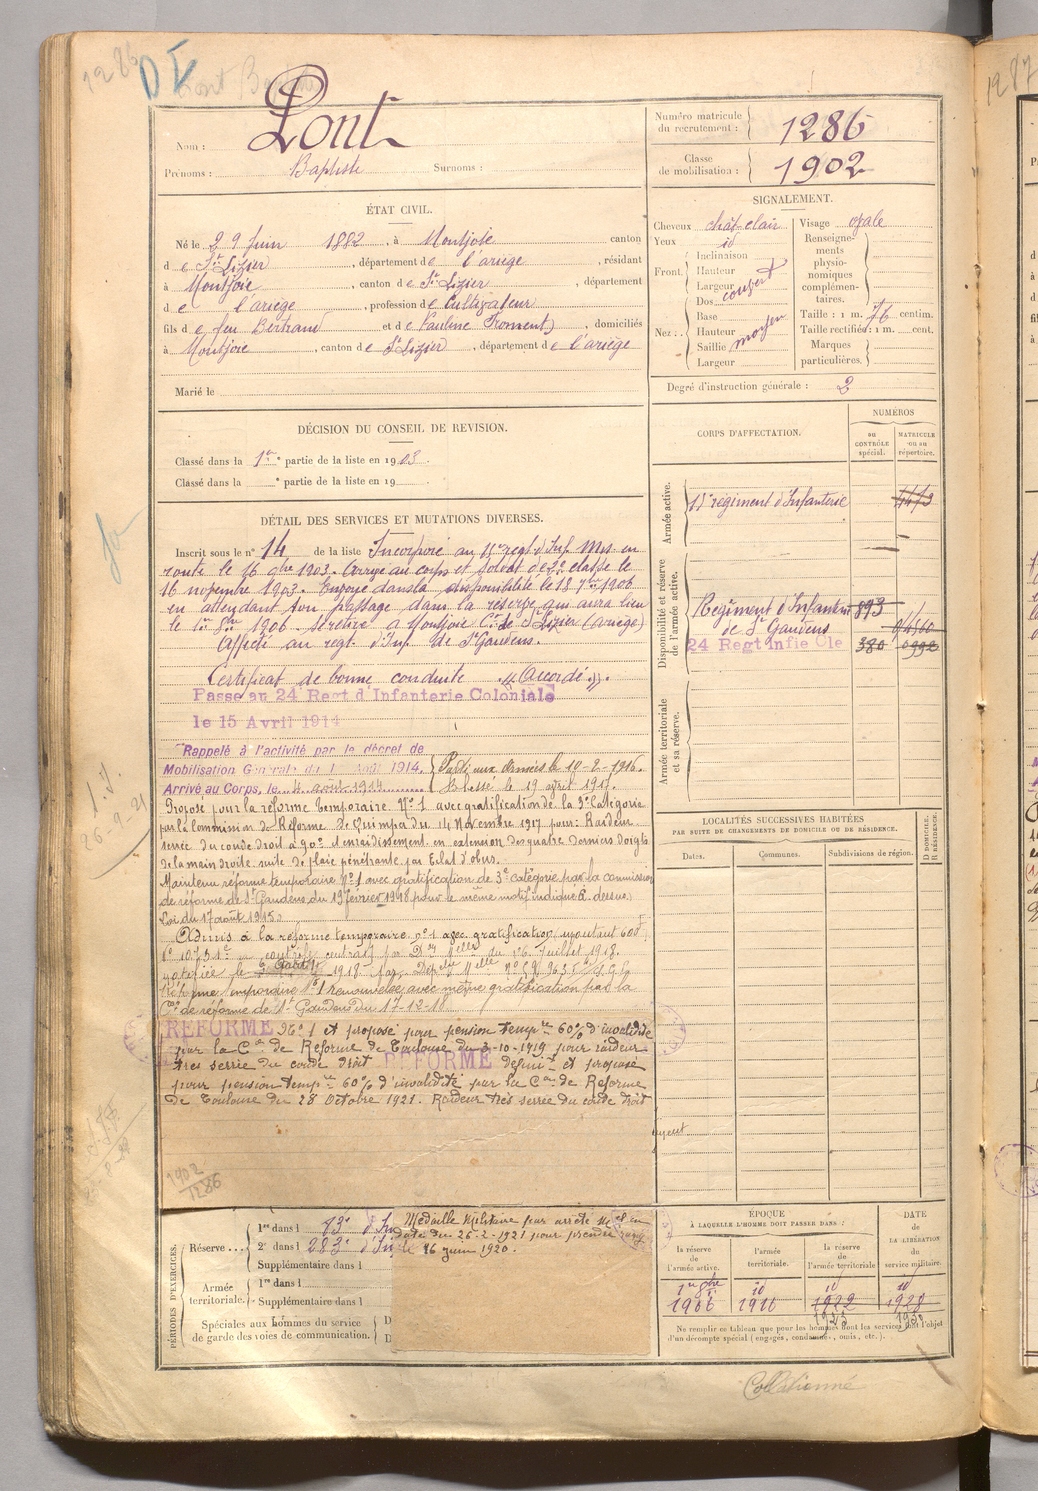 1286
D T
Nom : Pont
Prénoms : Baptiste Surnoms :
Numéro matricule du recrutement : 1286
Classe de mobilisation : 1902
ÉTAT CIVIL.
Né le 29 Juin 1882, à Montjoie canton
d e St Lizier, département de l'ariège, résidant
à Montjoie, canton de St Lizier, département
d e l'ariège, profession de Cultivateur
fils d e feu Bertrand et de Pauline Froment), domiciliés
à Montjoie, canton de St Lizier, département de l'ariège
Marié le
SIGNALEMENT.
Cheveux chât clair
Yeux id
Front. Inclinaison
Hauteur
Largeur
couvert
Nez : Dos
Base
Hauteur
Saillie
Largeur
moyen
Visage ovale
Renseignements physionomiques complémentaires.
Taille : 1 m. 76 centim.
Taille rectifiée : 1 m. cent.
Marques particulières.
Degré d'instruction générale : 2
DÉCISION DU CONSEIL DE REVISION.
Classé dans la 1re partie de la liste en 1903.
Classé dans la e partie de la liste en 19
CORPS D'AFFECTATION.
NUMÉROS
au CONTRÔLE spécial.
MATRICULE ou au répertoire.
Armée active.
11e régiment d'Infanterie 4473
Disponibilité et réserve de l'armée active.
Régiment d'Infanterie 893
de St Gaudens
24 Regt Infie Cle 380 0992
Armée territoriale et sa réserve.
DÉTAIL DES SERVICES ET MUTATIONS DIVERSES.
Inscrit sous le n° 14 de la liste Incorporé au 11e regt d'Inf. Mis en
route le 16 9bre 1903. Arrivé au corps et soldat de 2e classe le
16 novembre 1903. Envoyé dans la disponibilité le 18 7bre 1906
en attendant son passage dans la réserve qui aura lieu
le 1er 8bre 1906. Se retire à Montjoie Con de St Lizier (Ariège)
Affecté au regt. d'Inf. de St Gaudens.
Certificat de bonne conduite "Accordé".
Passé au 24 Regt d'Infanterie Coloniale
le 15 Avril 1914
Rappelé à l'activité par le décret de
Mobilisation Générale du 1 Août 1914.
Arrivé au Corps, le 4 août 1914
Parti aux Armées le 10-2-1916.
Blessé le 19 avril 1917.
Proposé pour la réforme temporaire N°1 avec gratification de la 3e catégorie
par la Commission de Réforme de Quimper du 14 Novembre 1917 pour : Raideur
serrée du coude droit à 90° et enraidissement en extension des quatre derniers doigts
de la main droite suite de plaie pénétrante par Eclat d'obus.
Maintenu réforme temporaire N°1 avec gratification de 3e catégorie par la commission
de réforme de St Gaudens du 19 février 1918 pour le même motif indiqué ci dessus.
Loi du 17 août 1915
Admis à la réforme temporaire n°1 avec gratification
du 26 Juillet 1918.
notifiée le 1918 par Dép.
Réforme temporaire N°1 renouvelée avec même gratification par la
Con de réforme de St Gaudens du 17-12-18
REFORME N° 1 et proposé pour pension tempre 60% d'invalidité
par la Con de Réforme de Toulouse du 3-10-1919 pour raideur
très serrée du coude droit
REFORME définif et proposé
pour pension tempre 60% d'invalidité par la Con de Réforme
de Toulouse du 28 Octobre 1921. Raideur très serrée du coude droit
1902
1286
LOCALITÉS SUCCESSIVES HABITÉES
PAR SUITE DE CHANGEMENTS DE DOMICILE OU DE RÉSIDENCE.
Dates. Communes. Subdivisions de région. D DOMICILE. R RÉSIDENCE.
PÉRIODES D'EXERCICES.
Réserve... 1re dans l 83e d'In
2e dans l 283e d'In
Supplémentaire dans l
Armée territoriale. 1re dans l
Supplémentaire dans l
Spéciales aux hommes du service de garde des voies de communication.
Médaille Militaire par arrêté
date du 26-2-1921 pour prendre rang
le 16 juin 1920.
ÉPOQUE
À LAQUELLE L'HOMME DOIT PASSER DANS :
la réserve de l'armée active.
l'armée territoriale.
la réserve de l'armée territoriale
DATE DE LA LIBÉRATION du service militaire.
1er 8bre 1906
id 1916
id 1922
1923
id 1928
1930
Ne remplir ce tableau que pour les hommes dont les services font l'objet
d'un décompte spécial (engagés, condamnés, omis, etc.).
Collationné
1287